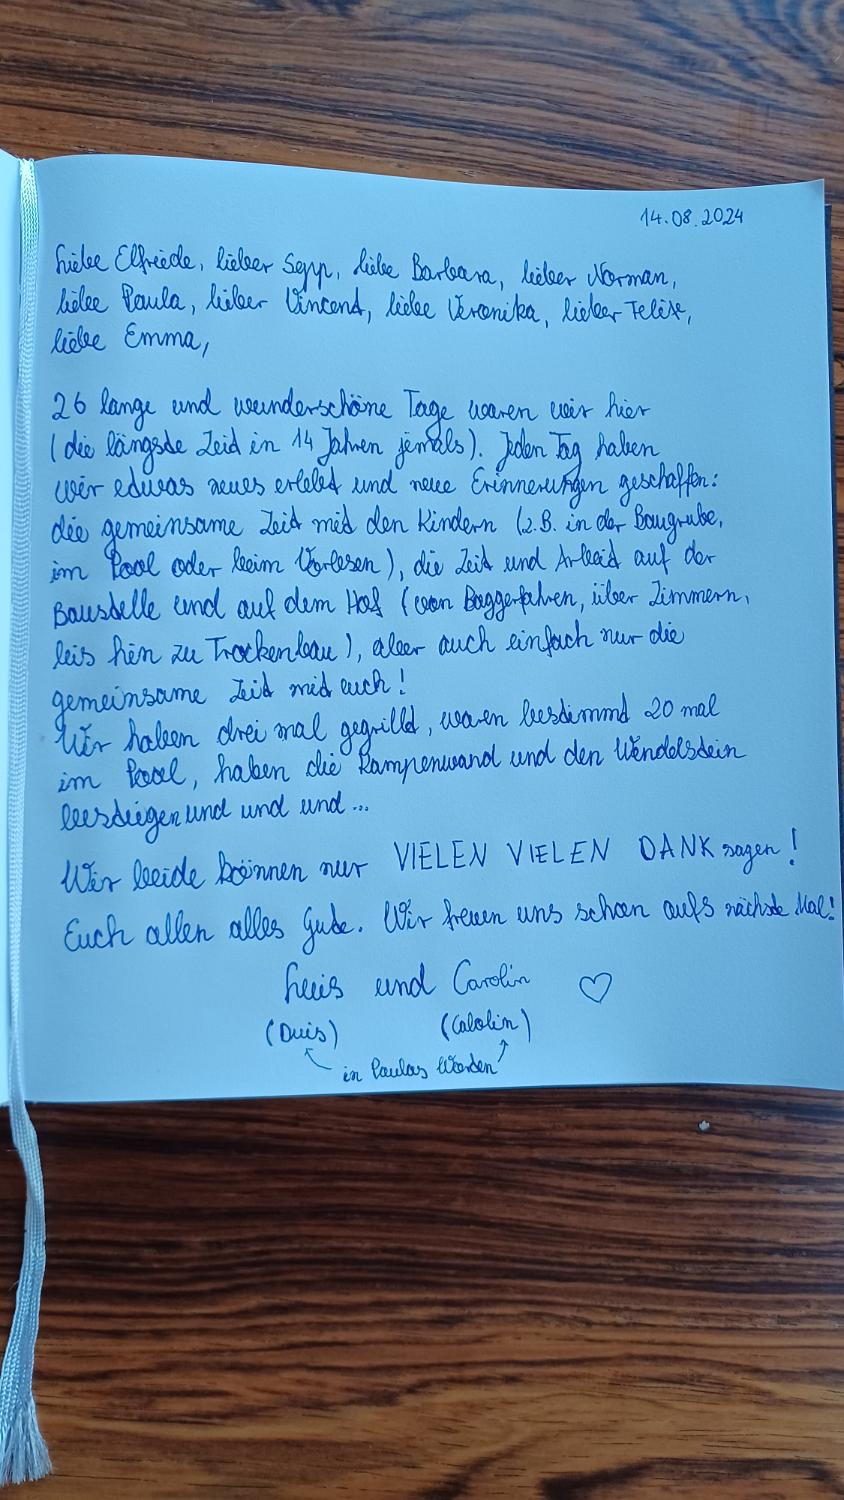 14.08.2024
Liebe Elfriede, lieber Sepp, liebe Barbara, lieber Norman,
liebe Paula, lieber Vincent, liebe Veronika, lieber Felix,
liebe Emma,
26 lange und wunderschöne Tage waren wir hier
(die längste Zeit in 14 Jahren jemals). Jeden Tag haben
wir etwas neues erlebt und neue Erinnerungen geschaffen:
die gemeinsame Zeit mit den Kindern (z.B. in der Baugrube,
im Pool oder beim Vorlesen), die Zeit und Arbeit auf der
Baustelle und auf dem Hof (von Baggerfahren, über Zimmern,
bis hin zu Trockenbau), aber auch einfach nur die
gemeinsame Zeit mit euch!
Wir haben drei mal gegrillt, waren bestimmt 20 mal
im Pool, haben die Kampenwand und den Wendelstein
bestiegen und und und...
Wir beide können nur VIELEN VIELEN DANK sagen!
Euch allen alles Gute. Wir freuen uns schon aufs nächste Mal!
Luis und Carolin ♡
(Duis) (Calolin)
in Paulas Worten